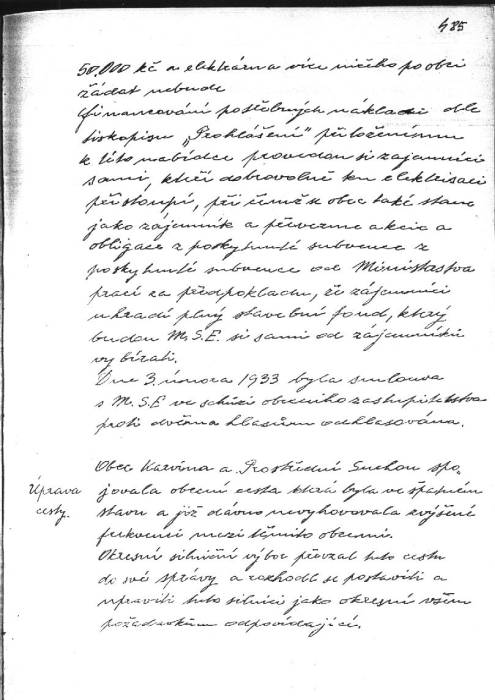 485
50.000 kč a elektrárna více ničeho po obci
žádat nebude
Financování potřebných nákladů dle
tiskopisu „Prohlášení" přiloženému
k této nabídce provedou si zájemníci
sami, kteří dobrovolně ku elektrisaci
přistoupí, při čemž k obec také stane
jako zájemník a převezme akcie a
obligace z poskytnuté subvence z
poskytnuté subvence od Ministrstva
prací za předpokladu, že zájemníci
uhradí plný stavební fond, který
budou M.S.E. si sami od zájemníků
vybírati.
Dne 3. února 1933 byla smlouva
s M.S.E ve schůzi obecního zastupitelstva
proti dvěma hlasům odhlasována.
Obec Karvina a Prostřední Suchou spo-
Úprava
cesty.
jovala obecní cesta která byla ve špatném
stavu a již dávno nevyhovovala zvýšené
frekvenci mezi těmito obcemi.
Okresní silniční výbor převzal tuto cestu
do své správy a rozhodl se postaviti a
upraviti tuto silnici jako okresní všem
požadavkům odpovídající.